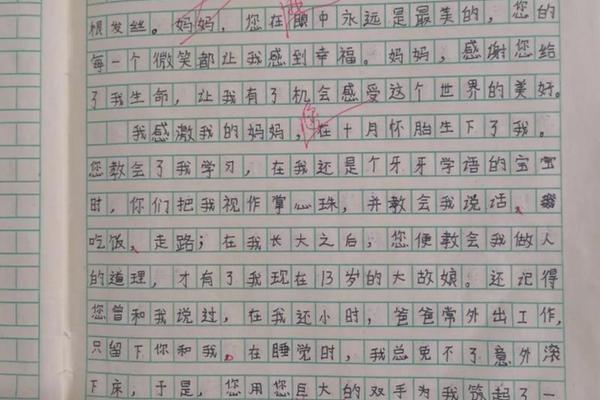 根发丝。妈妈，您在眼中永远是最美的，您的
每一个微笑都让我感到幸福。妈妈，感谢您给
了我生命，让我有了机会感受这个世界的美好。
我感激我的妈妈，您在十月怀胎生下了我。
您教会了我学习，在我还是个牙牙学语的宝宝
时，你们把我视作掌心珠，并教会我说话、
吃饭、走路；在我长大之后，您便教会我做人
的道理，才有了我现在13岁的大故娘。还记得
您曾和我说过，在我还小时，爸爸常外出工作，
只留下你和我。在睡觉时，我总免不了意外滚
下床，于是，您用您巨大的双手为我筑起了一